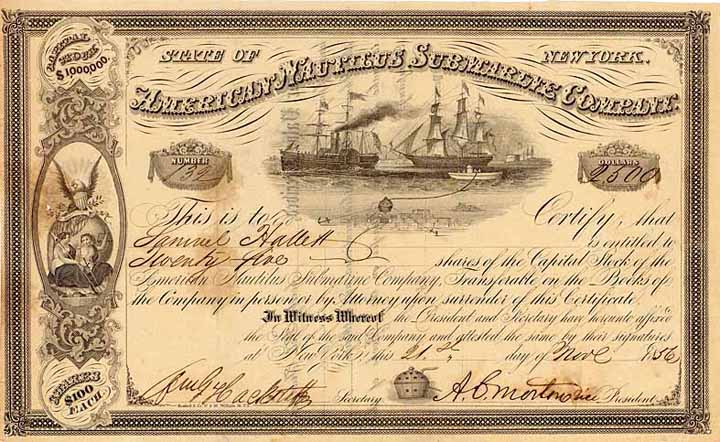 CAPITAL
STOCK
$1000,000.
STATE OF NEW YORK.
AMERICAN NAUTILUS SUBMARINE COMPANY.
NUMBER
139
DOLLARS
2500
This is to Certify, that
Samuel Hallett is entitled to
Twenty five shares of the Capital Stock of the
American Nautilus Submarine Company, Transferable on the Books of
the Company in person or by Attorney upon surrender of this Certificate.
In Witness Whereof the President and Secretary have hereunto affixed
the Seal of the said Company and attested the same by their signatures
at New York, this 21st day of Novr 1856
Secretary. A. C. Morton vice President.
SHARES
$100
EACH.